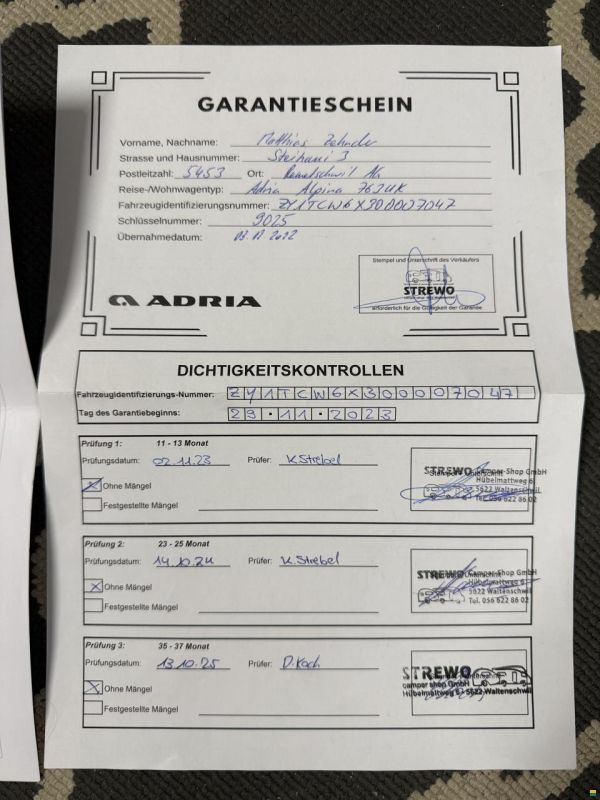 GARANTIESCHEIN
Vorname, Nachname: Matthias Zehnder
Strasse und Hausnummer: Steihuni 3
Postleitzahl: 5453 Ort: Remetschwil AG
Reise-/Wohnwagentyp: Adria Alpina 763UK
Fahrzeugidentifizierungsnummer: ZY1TCW6X300007047
Schlüsselnummer: 9025
Übernahmedatum: 2022
Stempel und Unterschrift des Verkäufers
STREWO
erforderlich für die Gültigkeit der Garantie
ADRIA
DICHTIGKEITSKONTROLLEN
Fahrzeugidentifizierungs-Nummer: ZY1TCW6X300007047
Tag des Garantiebeginns: 29.11.2023
Prüfung 1: 11 - 13 Monat
Prüfungsdatum: 02.11.23 Prüfer: K.Strebel
Ohne Mängel
Festgestellte Mängel
STREWO Camper-Shop GmbH
Hübelmattweg 6
5622 Waltenschwil
Tel. 056 622 86 02
Prüfung 2: 23 - 25 Monat
Prüfungsdatum: 14.10.24 Prüfer: K.Strebel
Ohne Mängel
Festgestellte Mängel
STREWO Camper-Shop GmbH
Hübelmattweg 6
5622 Waltenschwil
Tel. 056 622 86 02
Prüfung 3: 35 - 37 Monat
Prüfungsdatum: 13.10.25 Prüfer: D.Koch
Ohne Mängel
Festgestellte Mängel
STREWO
camper shop GmbH
Hübelmattweg 6 5622 Waltenschwil